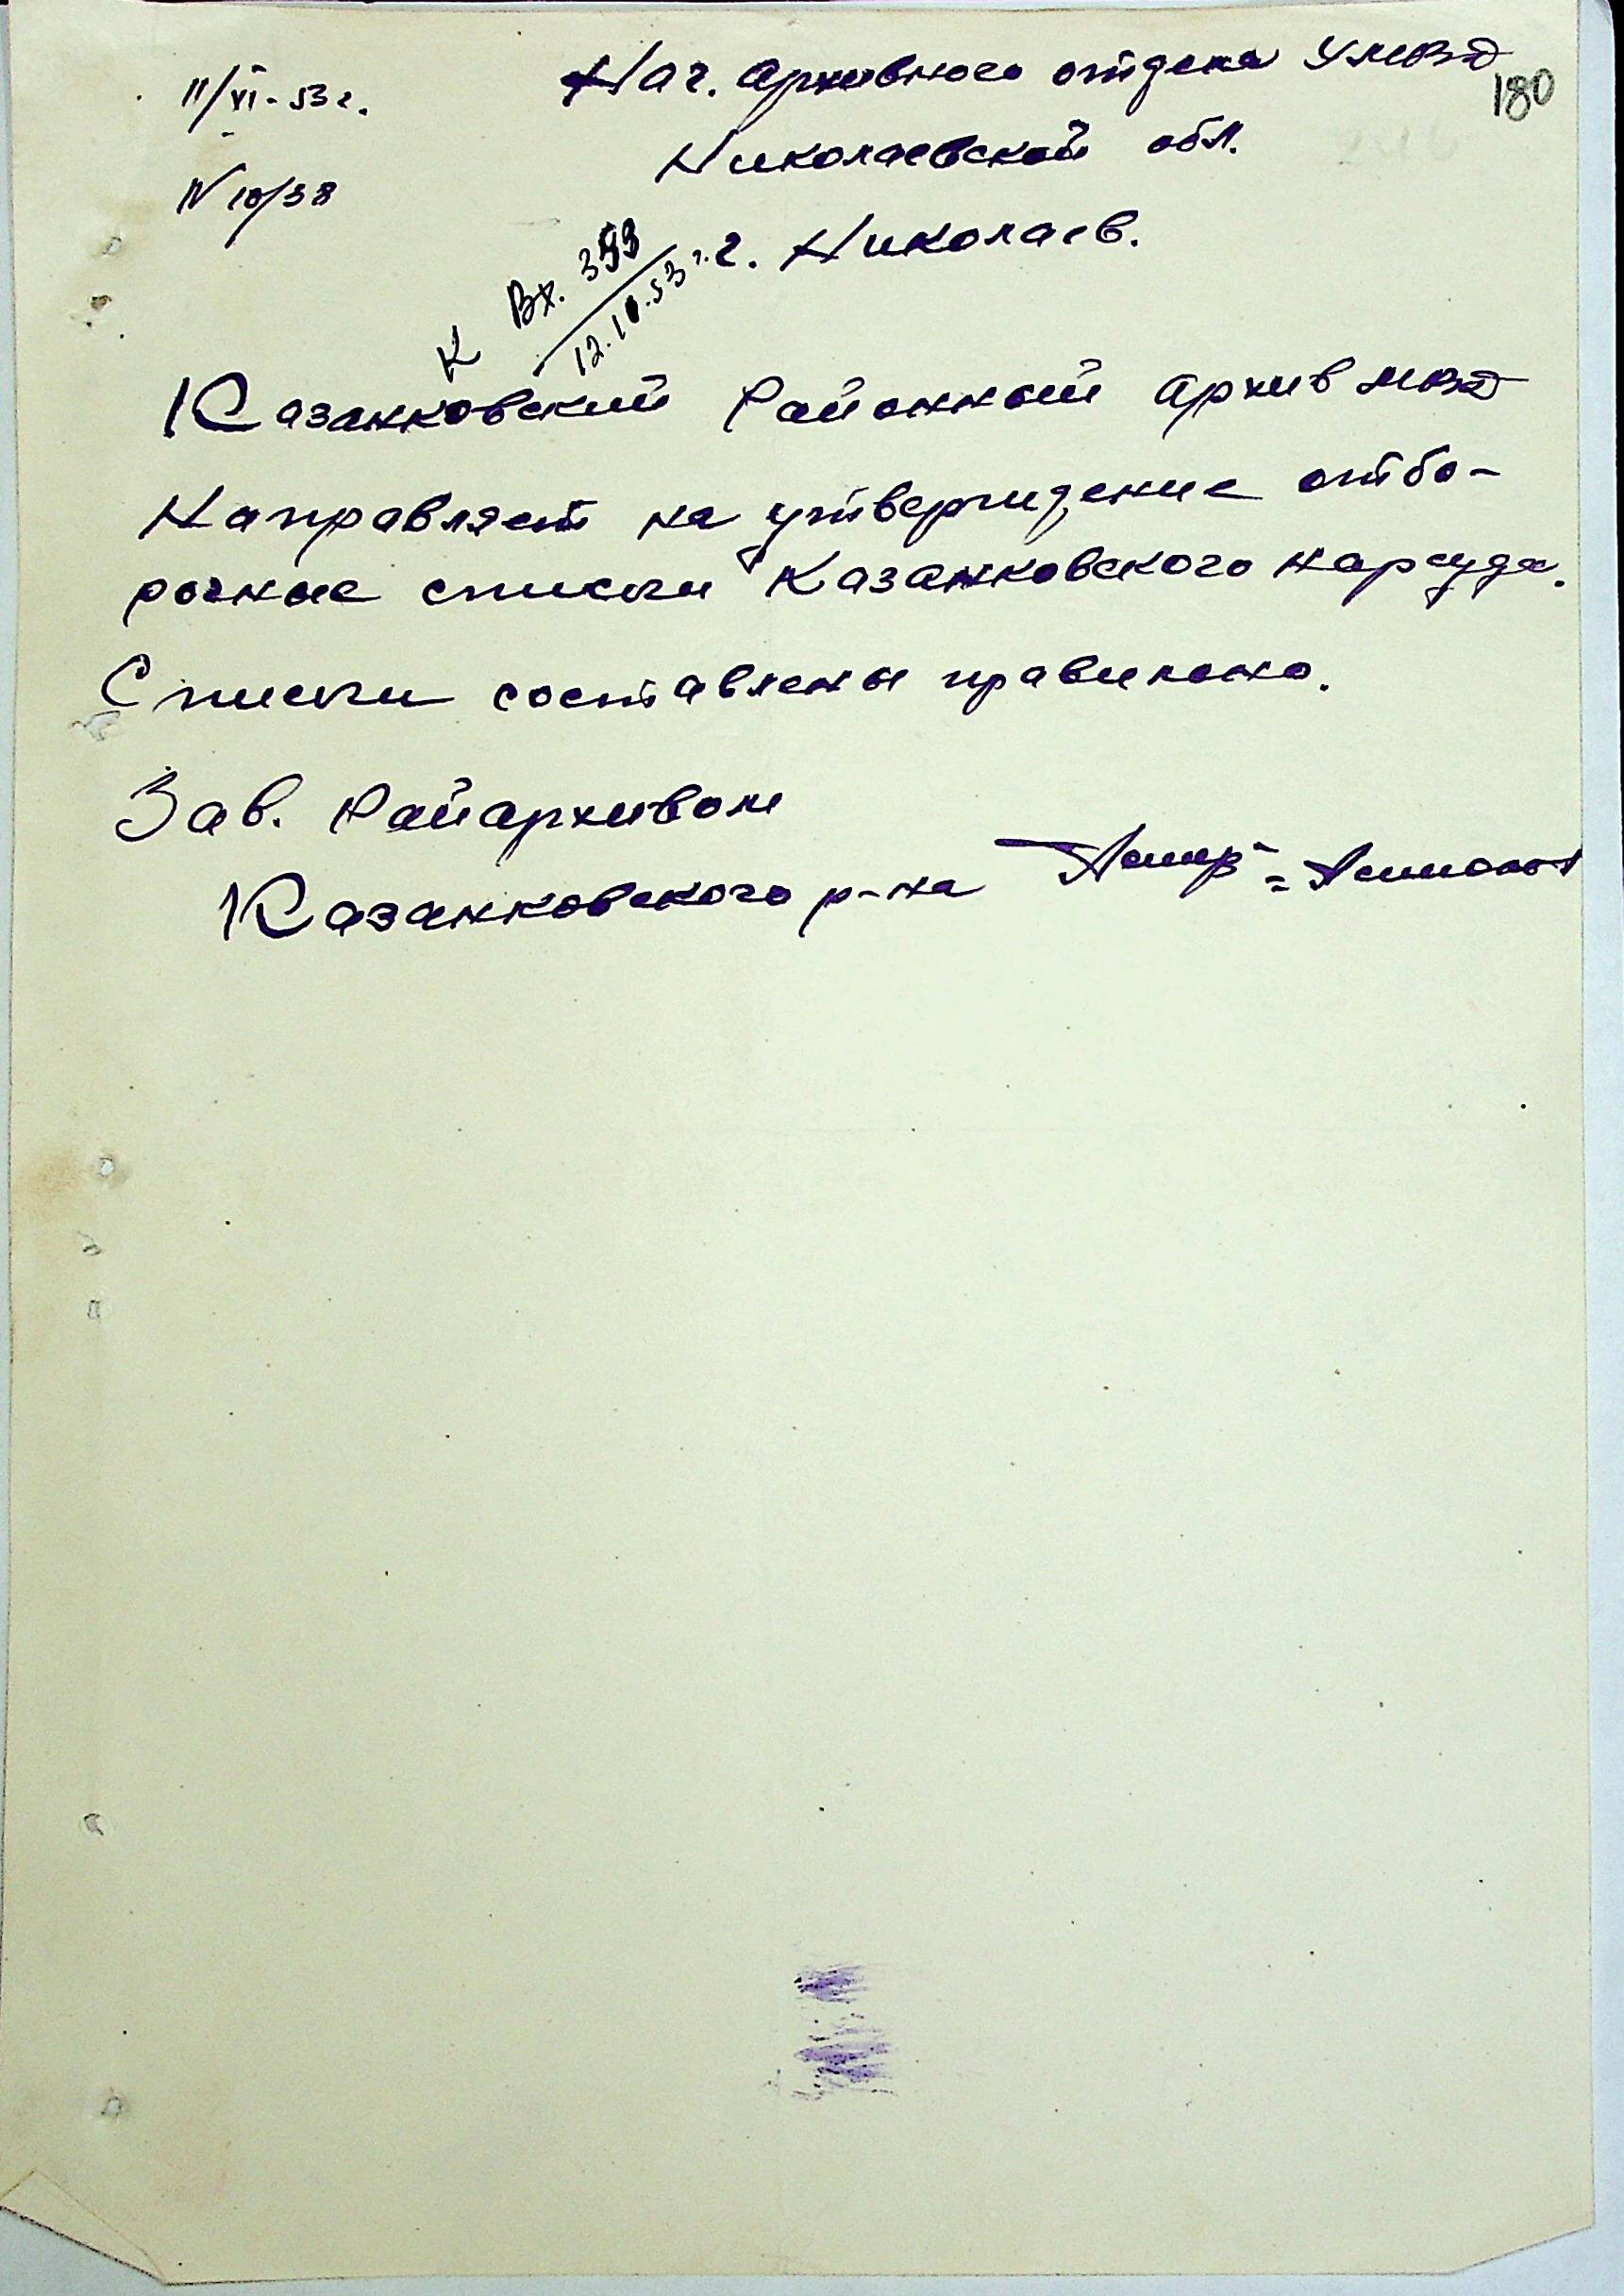 11/VI-53г.
№ 10/38
180
Нач. Архивного отдела УМВД
Николаевской обл.
г. Николаев.
К Вх. 353
12.10.53 г.
Казанковский Районный Архив МВД
Направляет на утверждение отбо-
рочные списки Казанковского нарсуда.
Списки составлены правильно.
Зав. Райархивом
Казанковского р-на